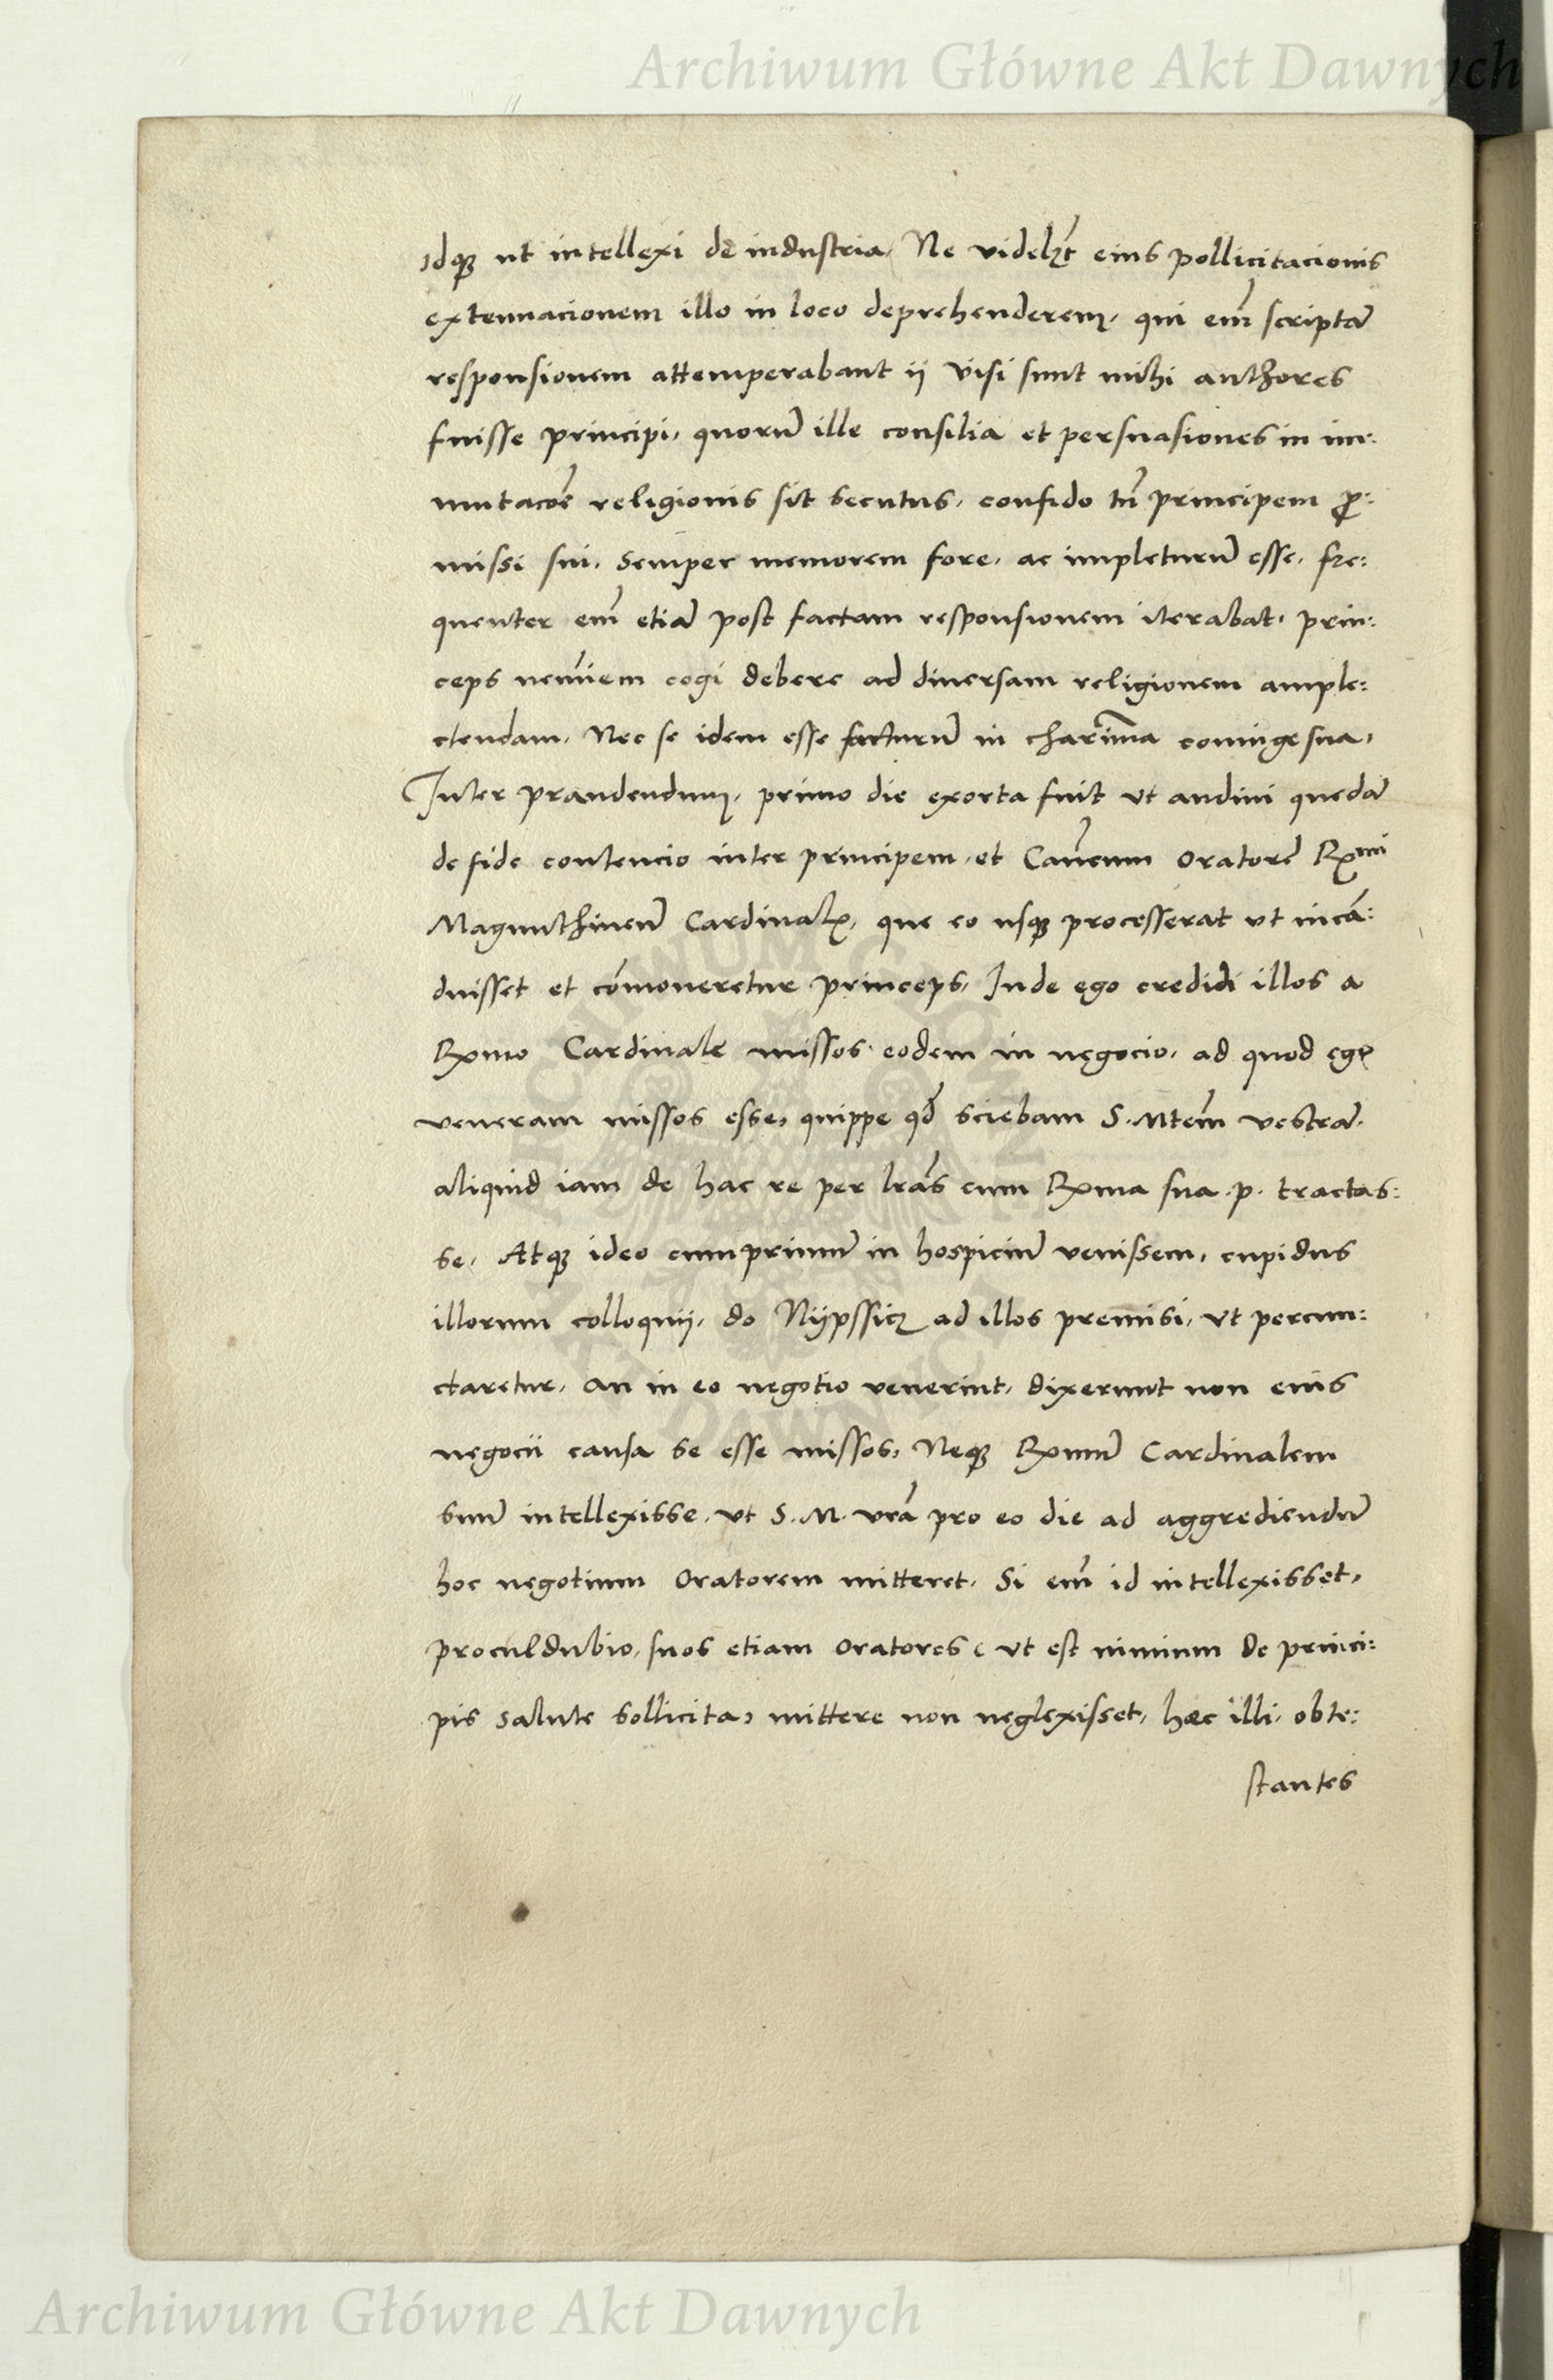 Archiwum Główne Akt Dawnych
idqꝫ ut intellexi de industria, Ne videlꝫt eius pollicitacionis
extenuacionem illo in loco deprehenderem, qui em̃ scriptã
responsionem attemperabant ij visi sunt mihi authores
fuisse principi, quorũ ille consilia et persuasiones in im:
mutacõe religionis sit secutus, confido tñ principem ꝓ:
missi sui, semper memorem fore, ac impleturũ esse, fre:
quenter em̃ etiã post factam responsionem iterabat, prin:
ceps nemĩem cogi debere ad diuersam religionem ample:
ctendam, Nec se idem esse facturũ in charim̃a coniuge sua,
Inter prandendum, primo die exorta fuit ut audiui quedã
de fide contencio inter principem, et Cau̅eum Oratorẽ Rxmi
Magunthineñ Cardinalꝭ, que eo usqꝫ processerat ut incã:
duisset et cõmoueretur princeps, Inde ego credidi illos a
Rxmo Cardinale missos eodem in negocio, ad quod ego
veneram missos esse, quippe qd̃ sciebam S. Mtem̃ vestrã,
aliquid iam de hac re per lrãs cum Rxma sua p. tractas:
se, Atqꝫ ideo cumprimũ in hospiciũ venissem, cupidus
illorum colloquij, do Nijpssicꝫ ad illos premisi, ut percun:
ctaretur, an in eo negotio venerint, dixerunt non eius
negocii causa se esse missos, Neqꝫ Rxmũ Cardinalem
suũ intellexisse, ut S. M. vrã pro eo die ad aggrediendũ
hoc negotium Oratorem mitteret, Si em̃ id intellexisset,
proculdubio, suos etiam Oratores (ut est nimium de princi:
pis salute sollicita) mittere non neglexisset, haec illi, obte:
stantes
Archiwum Główne Akt Dawnych